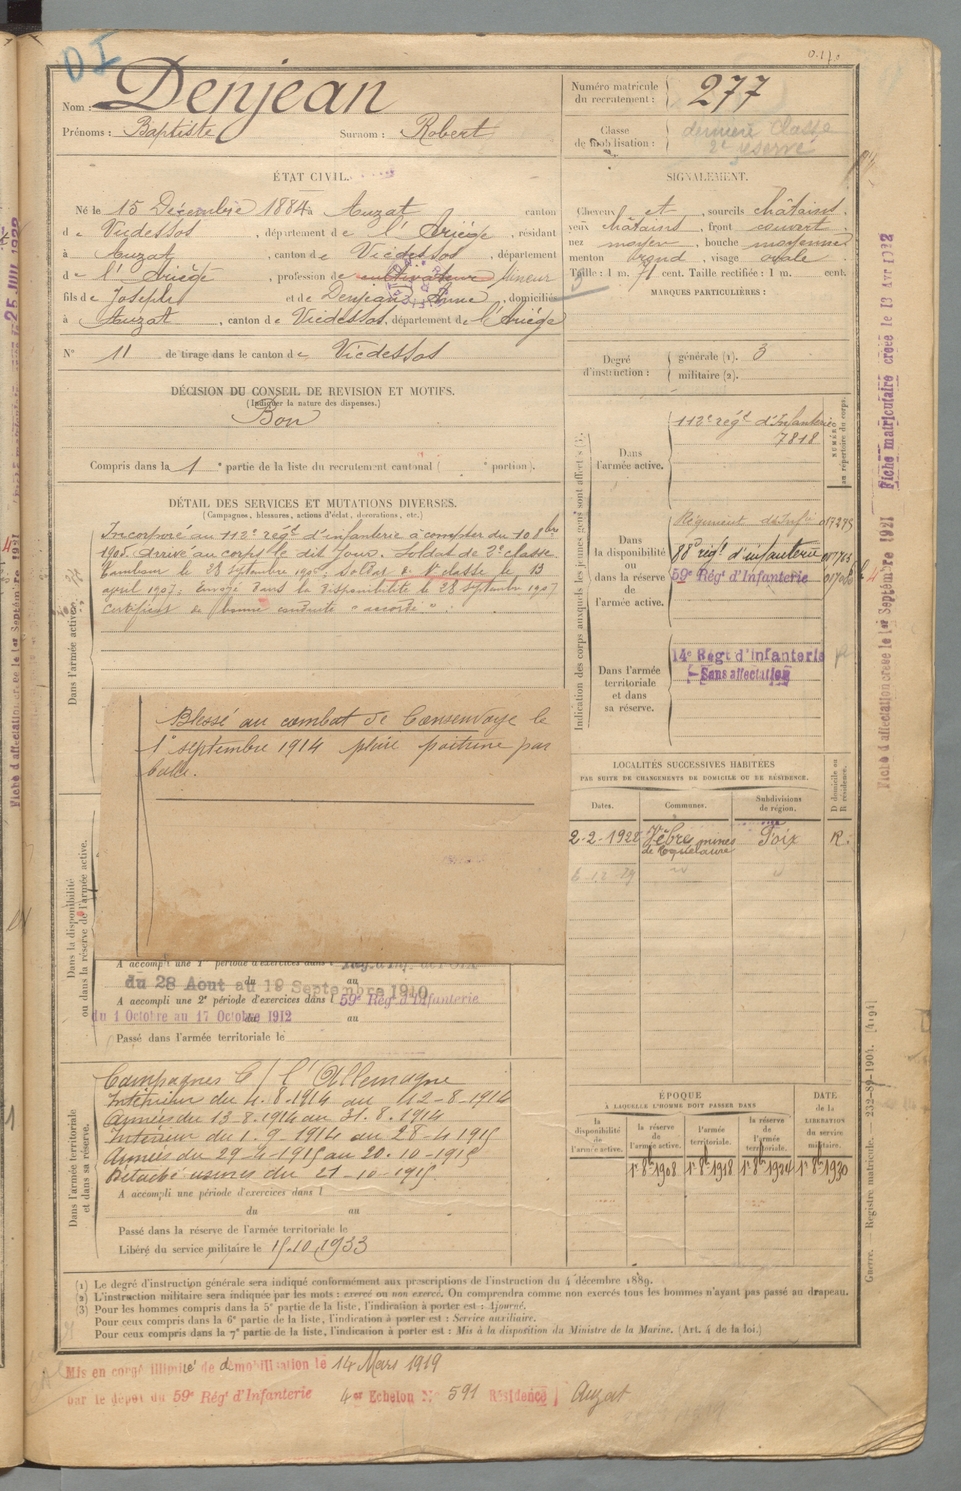 DI
Nom : Denjean
Prénoms : Baptiste Surnom : Robert
Numéro matricule du recrutement : 277
Classe de mobilisation : dernière Classe 2e réserve
ÉTAT CIVIL.
Né le 15 Décembre 1884 à Auzat canton
de Vicdessos, département de l'Ariège, résidant
à Auzat, canton de Vicdessos, département
de l'Ariège, profession de cultivateur mineur
fils de Joseph et de Denjean Anne, domiciliés
à Auzat, canton de Vicdessos, département de l'Ariège
N° 11 de tirage dans le canton de Vicdessos
SIGNALEMENT.
Cheveux et, sourcils châtains,
yeux châtains, front couvert
nez moyen, bouche moyenne
menton rond, visage ovale
Taille : 1 m. 71 cent. Taille rectifiée : 1 m. cent.
MARQUES PARTICULIÈRES :
Degré d'instruction : générale (1). 3
militaire (2).
DÉCISION DU CONSEIL DE REVISION ET MOTIFS.
(Indiquer la nature des dispenses.)
Bon
Compris dans la 1e partie de la liste du recrutement cantonal ( e portion).
DÉTAIL DES SERVICES ET MUTATIONS DIVERSES.
(Campagnes, blessures, actions d'éclat, décorations, etc.)
Dans l'armée active.
Incorporé au 112e régt d'infanterie à compter du 10 8bre
1905. Arrivé au corps le dit jour. Soldat de 2e classe.
Tambour le 28 septembre 1906; soldat de 1e classe le 13
avril 1907; Envoyé dans la disponibilité le 28 septembre 1907
Certificat de bonne conduite "accordé".
Blessé au combat de Consenvoye le
1er septembre 1914 plaie poitrine par
balle.
Dans la disponibilité ou dans la réserve de l'armée active.
A accompli une 1e période d'exercices dans l
du 28 Aout au 19 Septembre 1910
A accompli une 2e période d'exercices dans l 59e Régt d'Infanterie
du 1 Octobre au 17 Octobre 1912
Passé dans l'armée territoriale le
Dans l'armée territoriale et dans sa réserve.
Campagnes C/ l'Allemagne
Intérieur du 4-8-1914 au 12-8-1914
Armées du 13-8-1914 au 31-8-1914
Intérieur du 1-9-1914 au 28-4-1915
Armées du 29-4-1915 au 20-10-1915
Détaché usines du 21-10-1915
A accompli une période d'exercices dans l
du au
Passé dans la réserve de l'armée territoriale le
Libéré du service militaire le 15.10.1933
Indication des corps auxquels les jeunes gens sont affectés
NUMÉRO au répertoire du corps.
Dans l'armée active.
112e régt d'Infanterie
7818
Dans la disponibilité ou dans la réserve de l'armée active.
Régiment d'Infie
88e régt d'infanterie
59e Régt d'Infanterie
Dans l'armée territoriale et dans sa réserve.
14e Régt d'infanterie
Sans affectation
LOCALITÉS SUCCESSIVES HABITÉES
PAR SUITE DE CHANGEMENTS DE DOMICILE OU DE RÉSIDENCE.
D domicile ou R résidence.
Dates. Communes. Subdivisions de région.
2-2-1928 Vèbre mines de Roquelaure Foix R.
ÉPOQUE
À LAQUELLE L'HOMME DOIT PASSER DANS
DATE de la LIBÉRATION du service militaire.
la disponibilité de l'armée active. la réserve de l'armée active. l'armée territoriale. la réserve de l'armée territoriale.
1er 8bre 1908 1er 8bre 1918 1er 8bre 1924 1er 8bre 1930
(1) Le degré d'instruction générale sera indiqué conformément aux prescriptions de l'instruction du 4 décembre 1889.
(2) L'instruction militaire sera indiquée par les mots : exercé ou non exercé. On comprendra comme non exercés tous les hommes n'ayant pas passé au drapeau.
(3) Pour les hommes compris dans la 5e partie de la liste, l'indication à porter est : Ajourné.
Pour ceux compris dans la 6e partie de la liste, l'indication à porter est : Service auxiliaire.
Pour ceux compris dans la 7e partie de la liste, l'indication à porter est : Mis à la disposition du Ministre de la Marine. (Art. 4 de la loi.)
Mis en congé illimité de démobilisation le 14 Mars 1919
par le dépôt du 59e Régt d'Infanterie 4e Echelon N° 591 Résidence Auzat
Guerre. — Registre matricule. — 232-89-1904. [4194]
Fiche d'affectation créée le 1er Septembre 1921 Fiche matriculaire créée le 13 Avr 1922